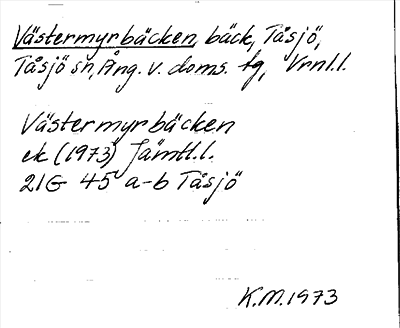 Västermyrbäcken, bäck, Tåsjö,
Tåsjö sn, Ång. v. doms. tg, Vrnl.l.
Västermyrbäcken
ek (1973) Jämtl.l.
21G 45 a-b Tåsjö
K.M.1973